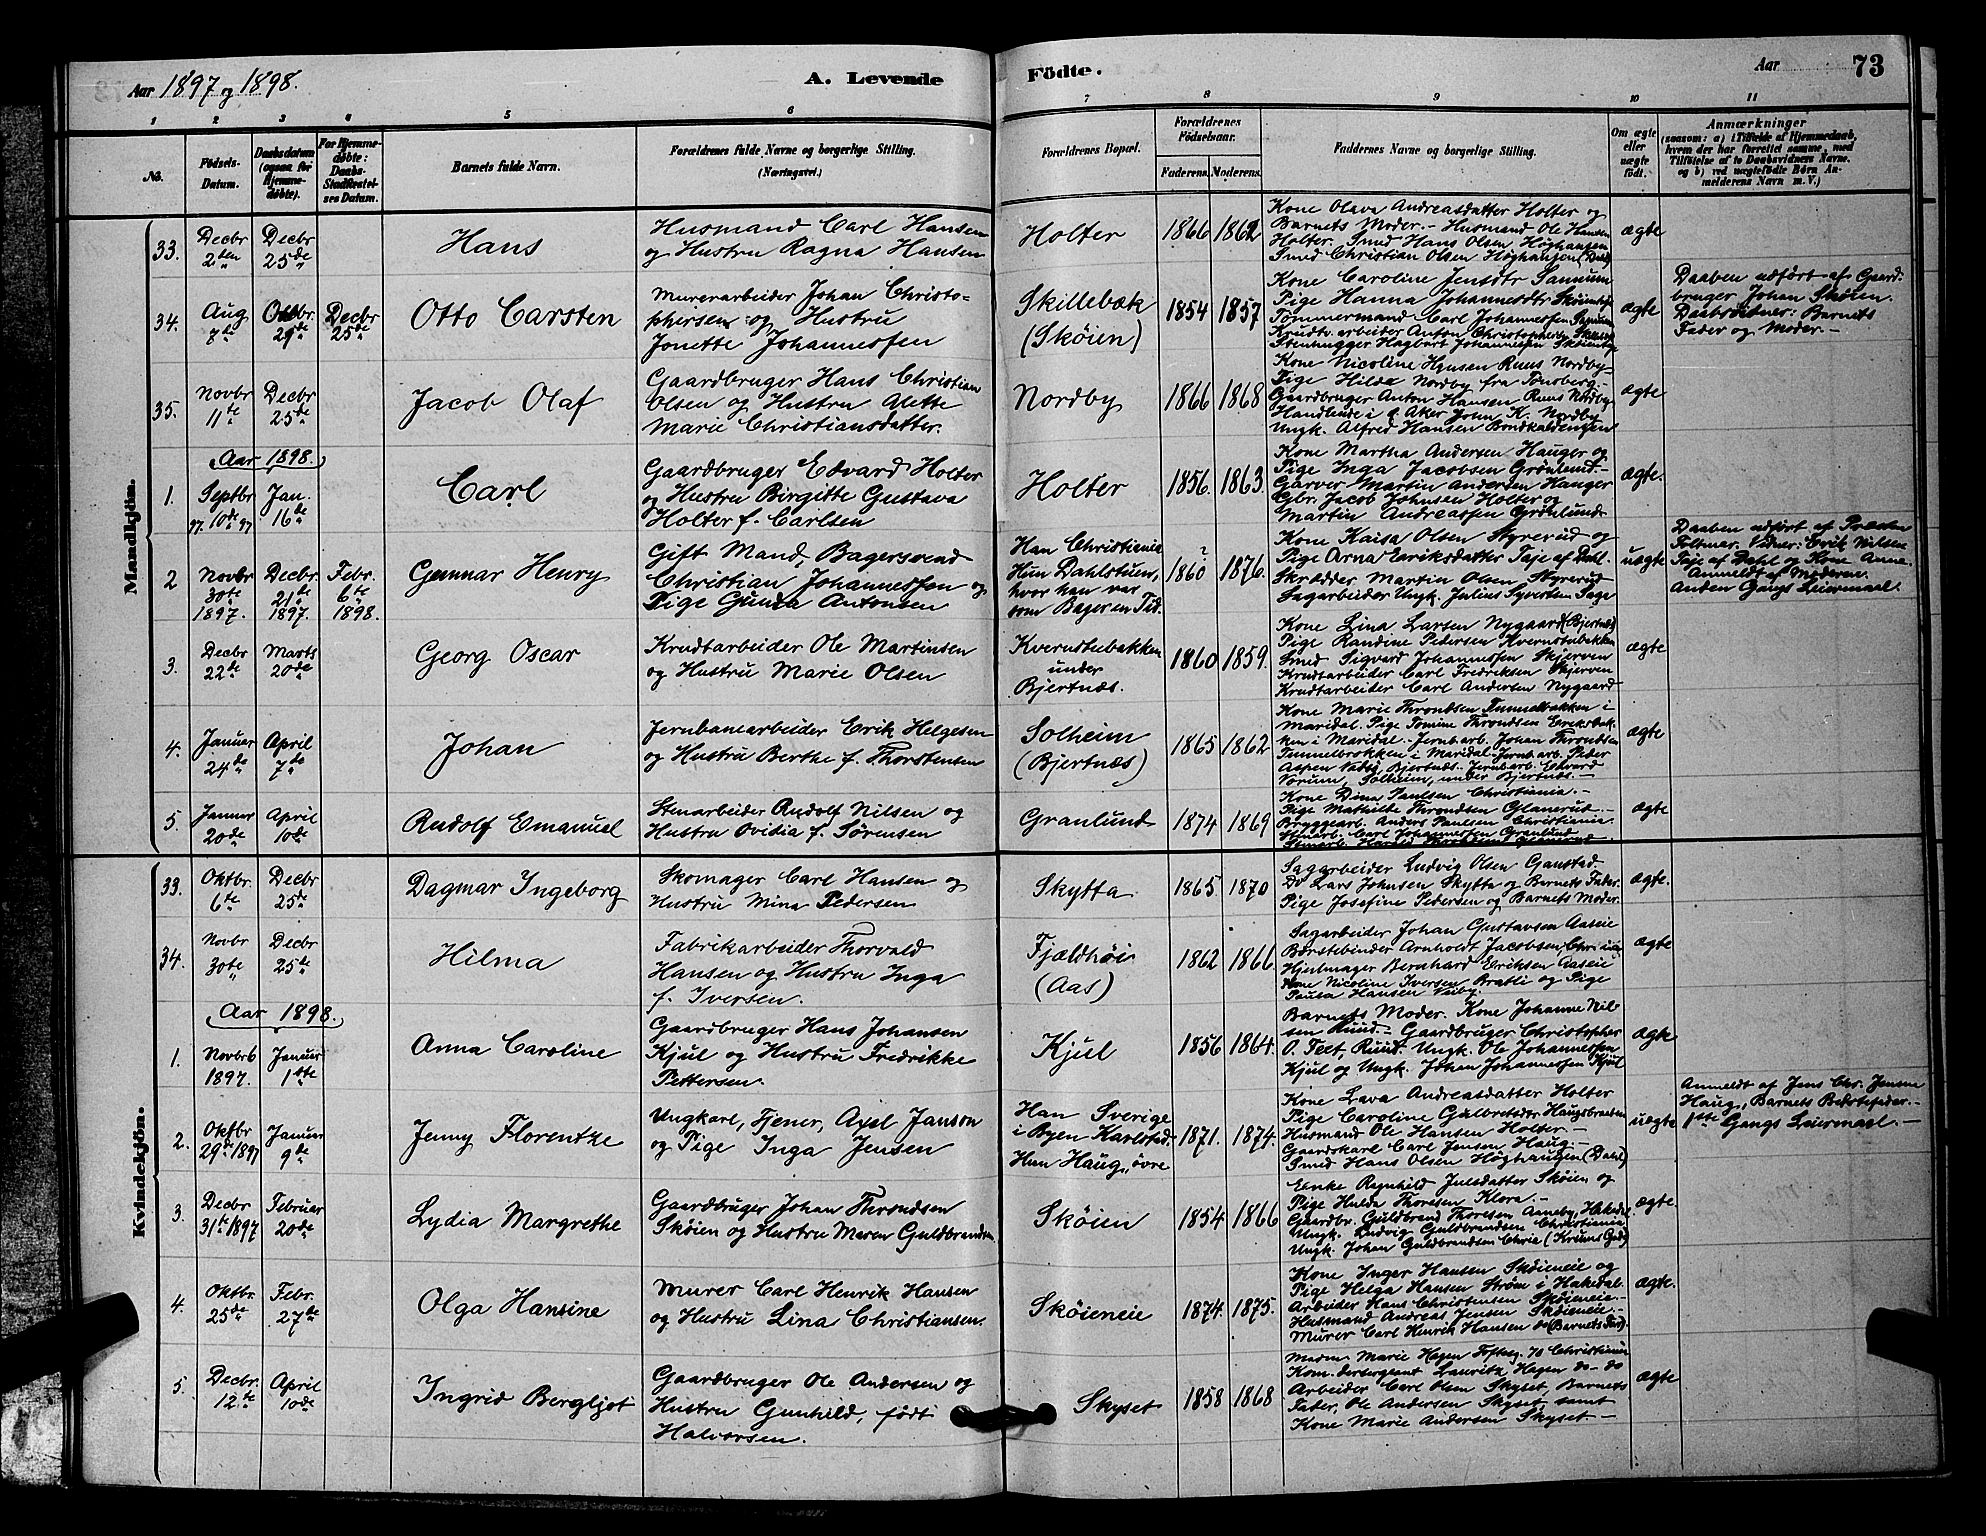 Aar 1897 og 1898.
A. Levende Fødte.
Aar 73
1 2 3 4 5 6 7 8 9 10 11
No.
Fødsels-Datum.
Daabsdatum (ogsaa for Hjemme-døbte).
For Hjemme-døbte: Daabs-Stadfæstel-ses Datum.
Barnets fulde Navn.
Forældrenes fulde Navne og borgerlige Stilling. (Næringsvei.)
Forældrenes Bopæl.
Forældrenes Fødselsaar.
Faderens. Moderens.
Faddernes Navne og borgerlige Stilling.
Om ægte eller uægte født.
Anmærkninger
(saasom: a) i Tilfælde af Hjemmedaab, hvem der har forrettet samme, med Tilføielse af to Daabsvidners Navne. og b) ved uægtefødte Børn An-melderens Navn m. V.)
Mandkjön.
33. Decbr 2den Decbr 25de
Hans
Husmand Carl Hansen
og Hustru Ragna Hansen
Holter
1866 1862
Kone Olava Andreasdatter Holter og
Barnets Moder. - Husmand Ole Hansen
Holter. Smed Hans Olsen Høghaugen
Smed Christian Olsen Høghaugen (Dahl)
ægte
34. Aug. 7de Oktbr. 29de Decbr 25de
Otto Carsten
Murerarbeider Johan Christo-
phersen og Hustru
Jonette Johannessen
Skillebæk
(Skøien)
1854 1857
Kone Caroline Jensdtr Sannum
Pige Hanna Johannesdtr
Tømmermand Carl Johannessen
Krudtv. arbeider Anton Christophersen
Stenhugger Hagbart Johannessen
ægte
Daaben udført af Gaard-
bruger Johan Skøien.
Daabsvidner: Barnets
Fader og Moder. -
35. Novbr 11te Decbr 25de
Jacob Olaf
Gaardbruger Hans Christian
Olsen og Hustru Alette
Marie Christiansdatter.
Nordby
1866 1868
Kone Nicoline Hansen Ruus Nordby
Pige Hilda Nordby fra Tønsberg.
Gaardbruger Anton Hansen Ruus Nordby
Handlende i Aker John K. Nordby
Ungk. Alfred Hansen Bondkaldengen
ægte
Aar 1898.
1. Septbr 10de 97 Jan. 16de
Carl
Gaardbruger Edvard Holter
og Hustru Birgitte Gustava
Holter f. Carlsen
Holter
1856. 1863.
Kone Martha Andersen Hauger og
Pige Inga Jacobsen Grønlund -
Garver Martin Andersen Hauger
Gbr. Jacob Johnsen Holter og
Martin Andreassen Grønlund
ægte.
2 Novbr 30te 1897. Decbr. 21de 1897. Febr. 6te 1898.
Gunnar Henry
Gift Mand, Bagersvend
Christian Johannessen og
Pige Gunda Antonsen
Han Christiania
Hun Dahlstuen,
hvor han var
som Bager en Tid.
1860 ? 1876.
Kone Kaisa Olsen Styrerud og
Pige Arna Eriksdatter Taje af Dahl.
Skrædder Martin Olsen Styrerud
Sagarbeider Ungk. Julius Syversen
uægte
Daaben udført af Præsten
Feltmar. Vidner: Erik Nilsen
Taje af Dahl og Kone Anne.
Anmeldt af Moderen.
Anden Gangs Leiermaal.
3. Decbr 22de Marts 20de
Georg Oscar
Krudtarbeider Ole Martinsen
og Hustru Marie Olsen
Kvernstubakken
under
Bjertnæs.
1860 1859.
Kone Lina Larsen Nygaard (Bjertnæs)
Pige Randine Pedersen Kvernstubakken
Smed Sigvard Johannessen Skjerven
Krudtarbeider Carl Fredriksen Skjerven
Krudtarbeider Carl Andersen Nygaard
ægte
4. Januar 24de April 7de
Johan
Jernbanearbeider Erik Helgesen
og Hustru Berthe f. Thorstensen
Solheim
(Bjertnæs)
1865 1862
Kone Marie Throndsen Tunnelbakken i
Maridal. Pige Tomine Throndsen Eriksbak-
ken i Maridal. Jernb.arb. Johan Throndsen
Tunnelbakken i Maridal. Jernb.arb. Peder
Aspen Bjertnæs. Jernb.arb. Edvard
Vorum, Solheim, under Bjertnæs. -
ægte
5. Januar 20de April 10de
Rudolf Emanuel
Stenarbeider Rudolf Nilsen og
Hustru Ovidia f. Sørensen
Granlund
1874 1869
Kone Dina Paulsen Christiania. -
Pige Mathilde Throndsen Glanerud. -
Bryggearb. Anders Paulsen Christiania.
Stenarb. Carl Johannessen Granlund
Stenarb. Harald
ægte
Kvindekjön.
33. Oktbr. 6te Decbr 25de
Dagmar Ingeborg
Skomager Carl Hansen og
Hustru Mina Pedersen
Skytta
1865 1870
Sagarbeider Ludvig Olsen Gaustad
Do Lars Johnsen Skytta og Barnets Fader.
Pige Josefine Pedersen og Barnets Moder.
ægte.
34. Novbr 30te Decbr 25de
Hilma
Fabrikarbeider Thorvald
Hansen og Hustru Inga
f. Iversen.
Fjeldhøi
(Aas)
1862 1866.
Sagarbeider Johan Gustavsen Aaseie
Børstebinder Arnholdt Jacobsen
Hjulmager Bernhard Eriksen Aaseie
Kone Nicoline Iversen Bratli og Pige
Paula Hansen
ægte
Aar 1898.
1. Novbr 6 1897. Januar 1ste
Anna Caroline
Gaardbruger Hans Johansen
Kjul og Hustru Fredrikke
Pettersen.
Kjul
1856 1864.
Barnets Moder. Kone Johanne Nil-
sen Ruud. Gaardbruger Christopher
O. Tert, Ruud. Ungk. Ole Johannessen
Kjul og Ungk. Johan Johannessen Kjul
ægte
2. Oktbr 29de 1897 Januar 9de
Jenny Florentze
Ungkarl, Tjener, Axel Janson
og Pige Inga Jensen
Han Sverige
i Byen Karlstad.
Hun Haug, øvre
1871. 1874.
Kone Lava Andreasdatter Holter
Pige Caroline Gulbrdsdtr Haugsbraaten
Husmand Ole Hansen Holter. -
Gaardskarl Carl Jensen Haug. -
Smed Hans Olsen Høghaugen (Dahl)
uægte
Anmeldt af Jens Chr. Jensen
Haug, Barnets Bedstefader. -
1ste Gangs Leiermaal. -
3. Decbr 31te 1897 Februar 20de
Lydia Margrethe
Gaardbruger Johan Throndsen
Skøien og Hustru Maren Guldbrandsen
Skøien
1854 1866
Enke Ragnhild Julsdatter Skøien og
Pige Hulda Thoresen Klora. -
Gaardbr. Guldbrand Thoresen, Aaneby, Hakedal
Ungk. Ludvig Guldbrandsen Christiania
Ungk. Johan Guldbrandsen Chria
ægte
4. Oktbr 25de Febr. 27de
Olga Hansine
Murer Carl Henrik Hansen
og Hustru Lina Christiansen.
Skøieneie
1874. 1875.
Kone Inger Hansen Skøieneie og
Pige Helga Hansen Strøm i Hakedal.
Arbeider Hans Christensen Skøieneie. -
Husmand Andreas Jensen Skøieneie. -
Murer Carl Henrik Hansen do (Barnets Far).
ægte.
5. Decbr. 12te April 10de
Ingrid Bergljot
Gaardbruger Ole Andersen og
Hustru Gunhild, født
Halvorsen.
Skyset
1858 1868
Madm. Marie Hagen Toftesg. 70 Christiania
Kom. dersergeant Lauritz Hagen do - do
Arbeider Carl Olsen Skyset, Barnets
Fader, Ole Andersen Skyset, samt
Kone Marie Andersen Skyset -
ægte